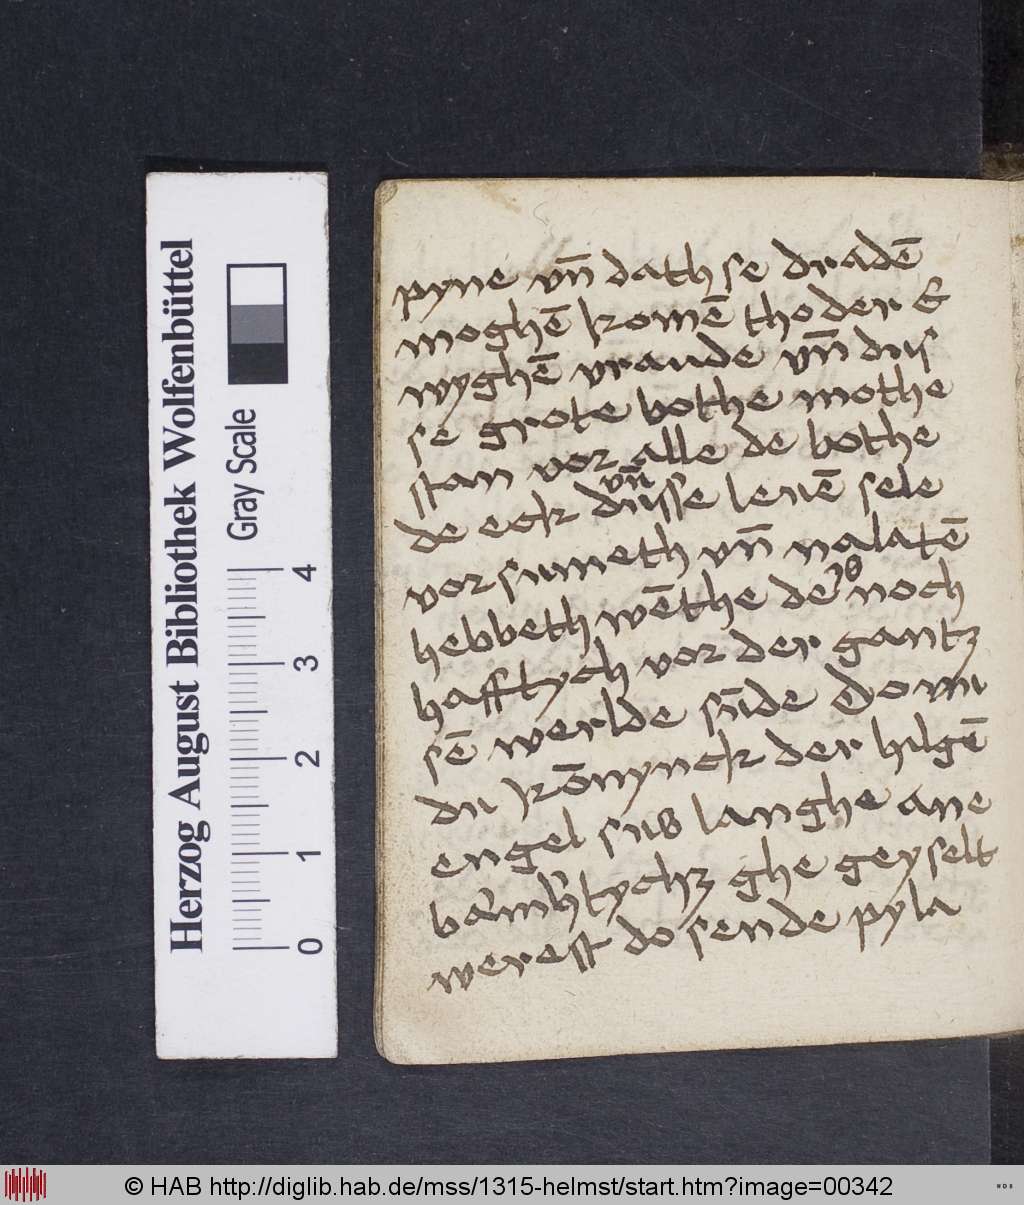 Herzog August Bibliothek Wolfenbüttel
Gray Scale
0 1 2 3 4
pyne vn̄ dath se dradē
moghē komē tho der E
wyghē vraude vn̄ dus
se grote bothe mothe
stan vor alle de bothe
vn̄
de eck dusse leuē sele
vorsumeth vn̄ nalatē
hebbeth wēthe de noch
hafftych vor der gantz
sē werlde sūde Do vm̄
du kōnynck der hilgē
engel sus langhe ane
ghe geyselt
werest do sende pyla
© HAB http://diglib.hab.de/mss/1315-helmst/start.htm?image=00342